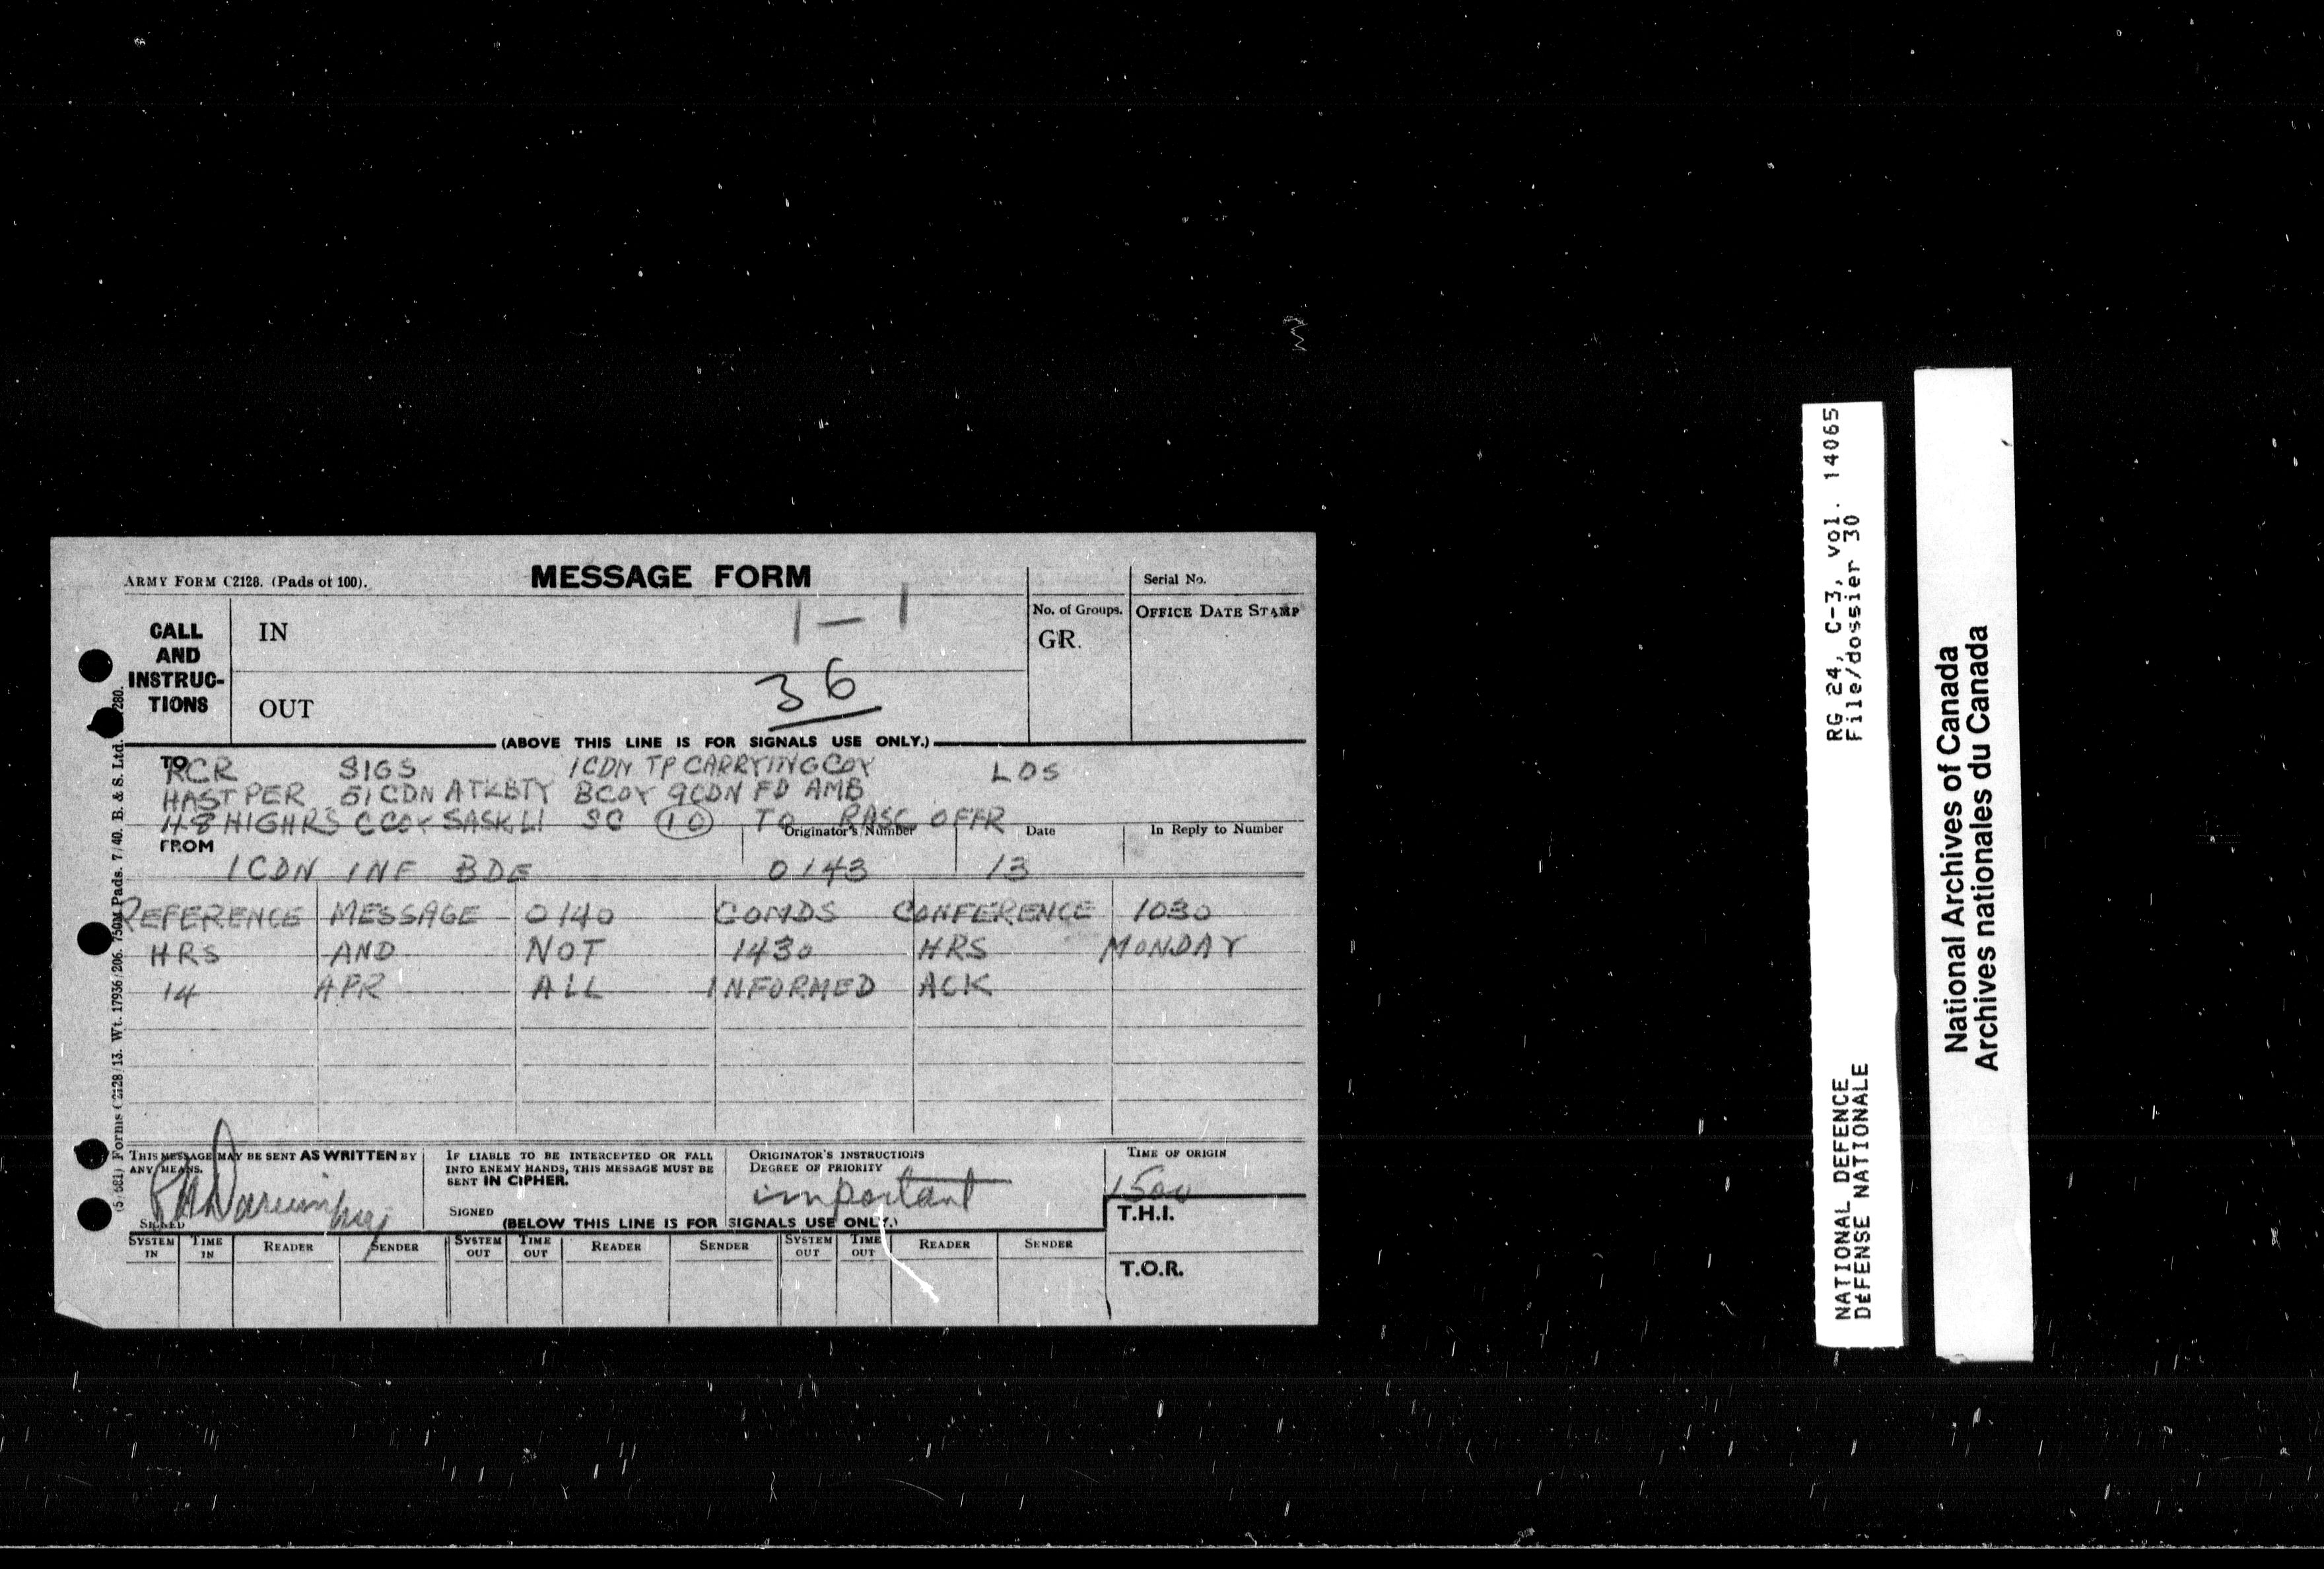 ARMY FORM C2128. (Pads of 100).
MESSAGE FORM
Serial No.
1 — 1
CALL AND INSTRUC-TIONS
IN
No. of Groups.
GR.
OFFICE DATE STAMP
OUT
36
(ABOVE THIS LINE IS FOR SIGNALS USE ONLY.)
TO
RCR SIGS 1 CDN TP CARRYING COY LOS
HAST PER 51 CDN ATK BTY B COY 9 CDN FD AMB
48 HIGHRS C COY SASK LI SC 10 TO RASC OFFR
Originator's Number Date In Reply to Number
FROM
1 CDN INF BDE 0143 13
REFERENCE MESSAGE 0140 COMDS CONFERENCE 1030
HRS AND NOT 1430 HRS MONDAY
14 APR ALL INFORMED ACK
THIS MESSAGE MAY BE SENT AS WRITTEN BY
ANY MEANS.
SIGNED
IF LIABLE TO BE INTERCEPTED OR FALL
INTO ENEMY HANDS, THIS MESSAGE MUST BE
SENT IN CIPHER.
SIGNED
ORIGINATOR'S INSTRUCTIONS
DEGREE OF PRIORITY
important
TIME OF ORIGIN
1500
T.H.I.
(BELOW THIS LINE IS FOR SIGNALS USE ONLY.)
SYSTEM IN TIME IN READER SENDER SYSTEM OUT TIME OUT READER SENDER SYSTEM OUT TIME OUT READER SENDER
T.O.R.
Forms C2128/13. Wt. 17936/206. 750M Pads. 7/40. B. & S. Ltd.
RG 24, C-3, vol. 14065
File/dossier 30
NATIONAL DEFENCE
DÉFENSE NATIONALE
National Archives of Canada
Archives nationales du Canada